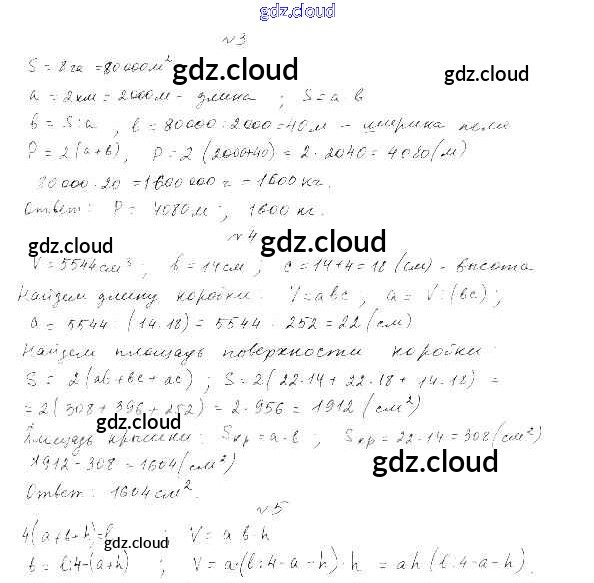 gdz.cloud
№3
S = 8 га = 80000 м²
gdz.cloud
gdz.cloud
a = 2 км = 2000 м - длина ; S = a b
b = S : a , b = 80000 : 2000 = 40 м - ширина поля
P = 2(a+b), P = 2(2000+40) = 2·2040 = 4080 (м)
80000·20 = 1600000 г = 1600 кг.
Ответ: P = 4080 м ; 1600 кг.
№4
gdz.cloud
gdz.cloud
V = 5544 см³ ; b = 14 см ; c = 14+4 = 18 (см) - высота
Найдем длину коробки: V = abc , a = V : (bc) ;
a = 5544 : (14·18) = 5544 : 252 = 22 (см)
Найдем площадь поверхности коробки:
S = 2(ab+bc+ac) ; S = 2(22·14 + 22·18 + 14·18) =
= 2(308 + 396 + 252) = 2·956 = 1912 (см²)
gdz.cloud
Площадь крышки: Sкр = a·b ; Sкр = 22·14 = 308 (см²)
1912 - 308 = 1604 (см²)
gdz.cloud
Ответ: 1604 см².
№5
4(a+b+h) = ; V = a b h
gdz.cloud
b = l:4-(a+h) ; V = a·(l:4-a-h)·h = ah(l:4-a-h).